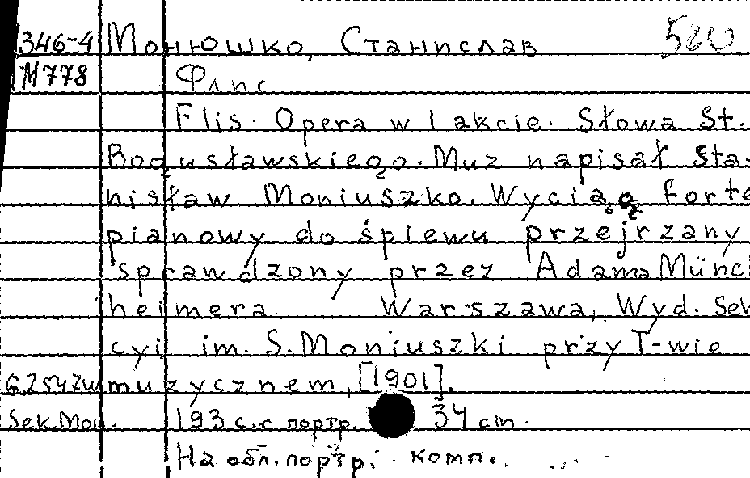 346-4 Монюшко, Станислав 580
М778 Флис
Flis. Opera w 1 akcie. Słowa St.
Bogusławskiego. Muz napisał Sta-
nisław Moniuszko. Wyciąg forte
pianowy do śpiewu przejrzany
sprawdzony przez Adama Münch
heimera Warszawa, Wyd. Sek
cyi im. S. Moniuszki przy T-wie
muzycznem, [1901].
Sek.Mon. 193 с. с портр. 34 cm.
На обл. портр. комп.